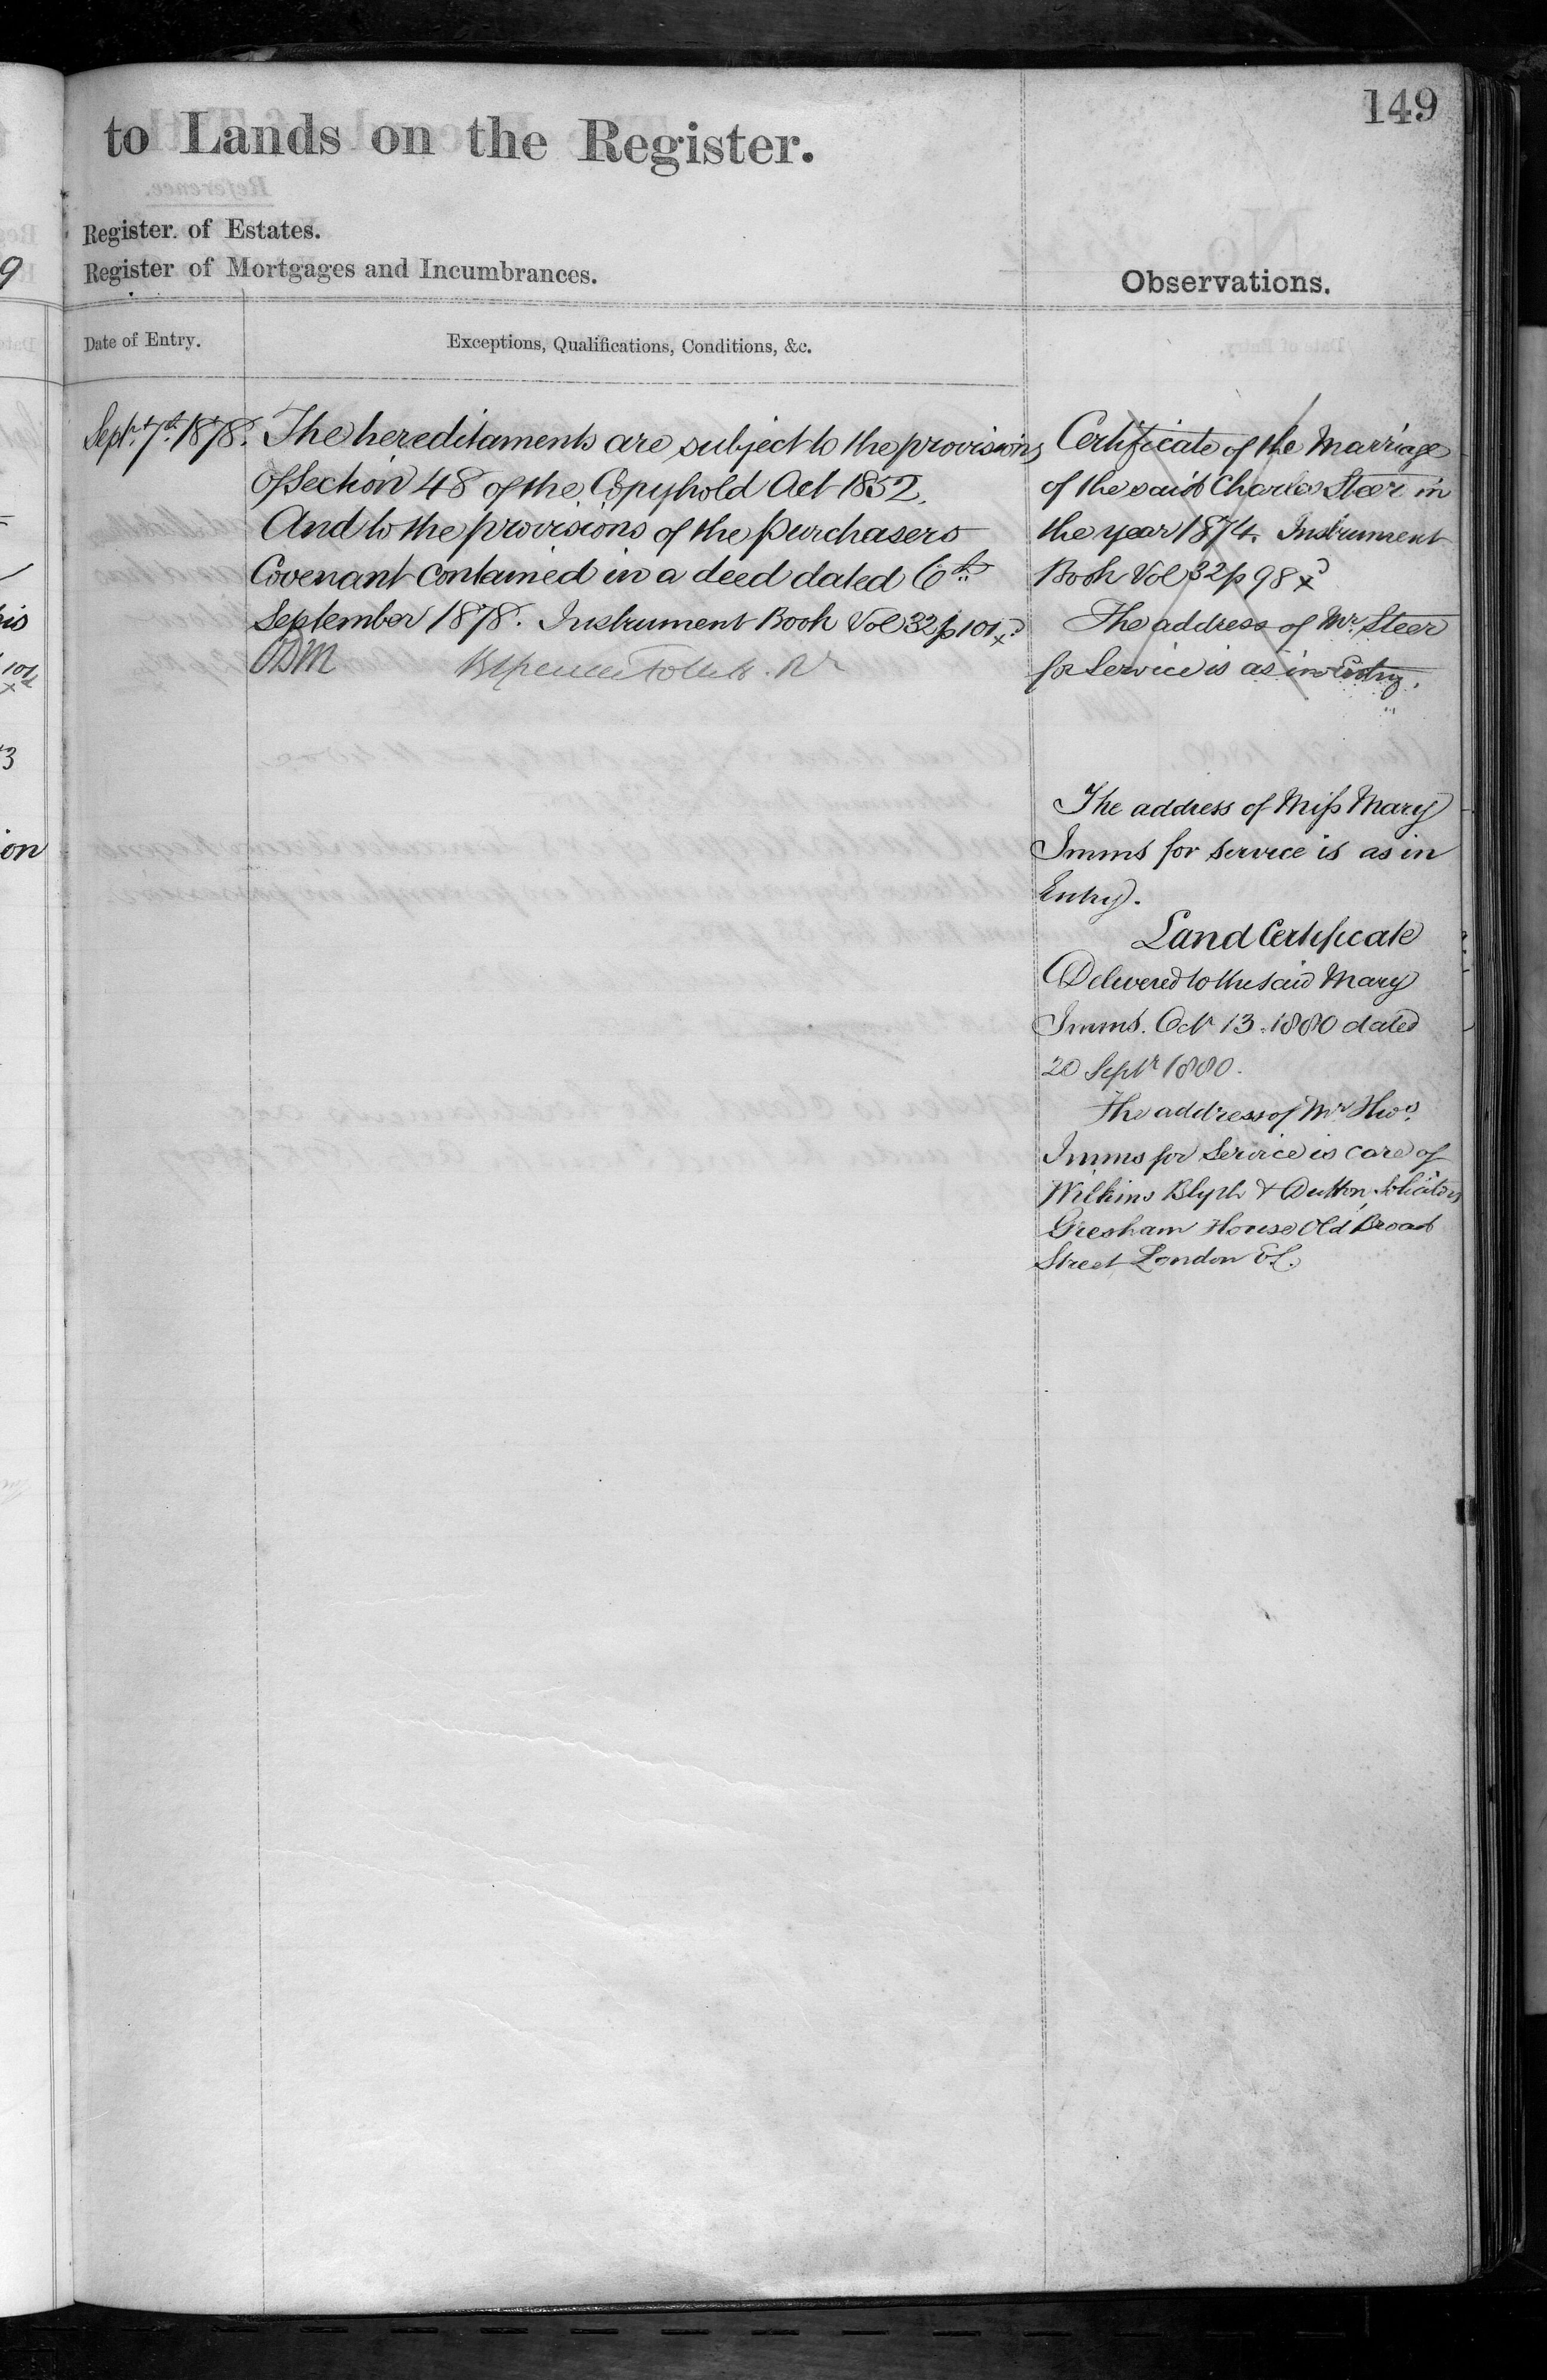 149
to Lands on the Register.
Register of Estates.
Register of Mortgages and Incumbrances.
Observations.
Date of Entry.
Exceptions, Qualifications, Conditions, &c.
Septr. 7th 1878.
The hereditaments are subject to the provisions
of Section 48 of the Copyhold Act 1852.
And to the provisions of the purchasers
Covenant contained in a deed dated 6th
September 1878. Instrument Book Vol 32 p 101
Certificate of the Marriage
of the said Charles Steer in
the year 1874. Instrument
Book Vol 32 p 98
The address of Mr. Steer
for Service is as in Entry.
The address of Miss Mary
Imms for service is as in
Entry.
Land Certificate
Delivered to the said Mary
Imms. Octr 13. 1880 dated
20 Septr 1880.
The address of Mr Thos.
Imms for Service is care of
Wilkins Blyth & Dutton, Solicitors
Gresham House Old Broad
Street London EC.